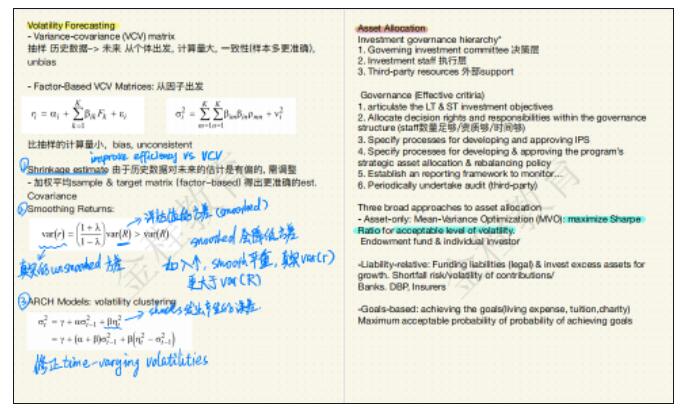 Volatility Forecasting
- Variance-covariance (VCV) matrix
抽样 历史数据-> 未来 从个体出发, 计算量大, 一致性(样本多更准确),
unbias
- Factor-Based VCV Matrices: 从因子出发
r_i = α_i + Σ_{k=1}^{K} β_{ik} F_k + ε_i
σ_i² = Σ_{m=1}^{K} Σ_{n=1}^{K} β_{im} β_{in} ρ_{mn} + ν_i²
比抽样的计算量小, bias, unconsistent
improve efficiency vs VCV
① Shrinkage estimate 由于历史数据对未来的估计是有偏的, 需调整
- 加权平均sample & target matrix (factor-based) 得出更准确的est.
Covariance
② Smoothing Returns:
评估值的方差 (smoothed)
var(r) = ((1 + λ)/(1 − λ)) var(R) > var(R)
smoothed 会降低方差
真实的unsmoothed 方差
如 λ↑, smooth 严重, 真实var(r)
更大于 var(R)
③ ARCH Models: volatility clustering
σ_t² = γ + ασ_{t−1}² + βη_t²
= γ + (α + β)σ_{t−1}² + β(η_t² − σ_{t−1}²)
shocks
修正time-varying volatilities
Asset Allocation
Investment governance hierarchy*
1. Governing investment committee 决策层
2. Investment staff 执行层
3. Third-party resources 外部support
Governance (Effective critiria)
1. articulate the LT & ST investment objectives
2. Allocate decision rights and responsibilities within the governance
structure (staff数量足够/资质够/时间够)
3. Specify processes for developing and approving IPS
4. Specify processes for developing & approving the program's
strategic asset allocation & rebalancing policy
5. Establish an reporting framework to monitor...
6. Periodically undertake audit (third-party)
Three broad approaches to asset allocation
- Asset-only: Mean-Variance Optimization (MVO): maximize Sharpe
Ratio for acceptable level of volatility.
Endowment fund & individual investor
-Liability-relative: Funding liabilities (legal) & invest excess assets for
growth. Shortfall risk/volatility of contributions/
Banks. DBP, Insurers
-Goals-based: achieving the goals(living expense, tuition,charity)
Maximum acceptable probability of probability of achieving goals